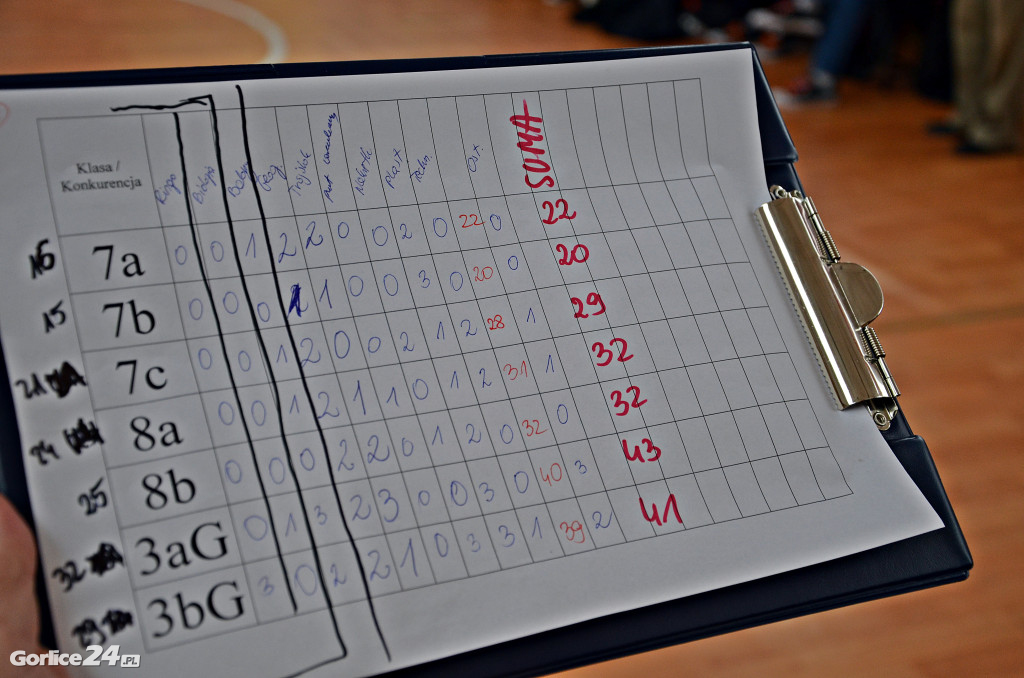 Klasa /
Konkurencja
SUMA
16 7a 0 0 1 2 2 0 0 2 0 22 0 22
15 7b 0 0 0 1 1 0 0 3 0 20 0 20
21 7c 0 0 1 2 0 0 2 1 2 28 1 29
24 8a 0 0 1 2 1 1 0 1 2 31 1 32
25 8b 0 0 0 2 2 0 1 2 0 32 0 32
32 3aG 0 1 3 2 3 0 0 3 0 40 3 43
29 3bG 3 0 2 2 1 0 3 3 1 39 2 41
Gorlice24.PL